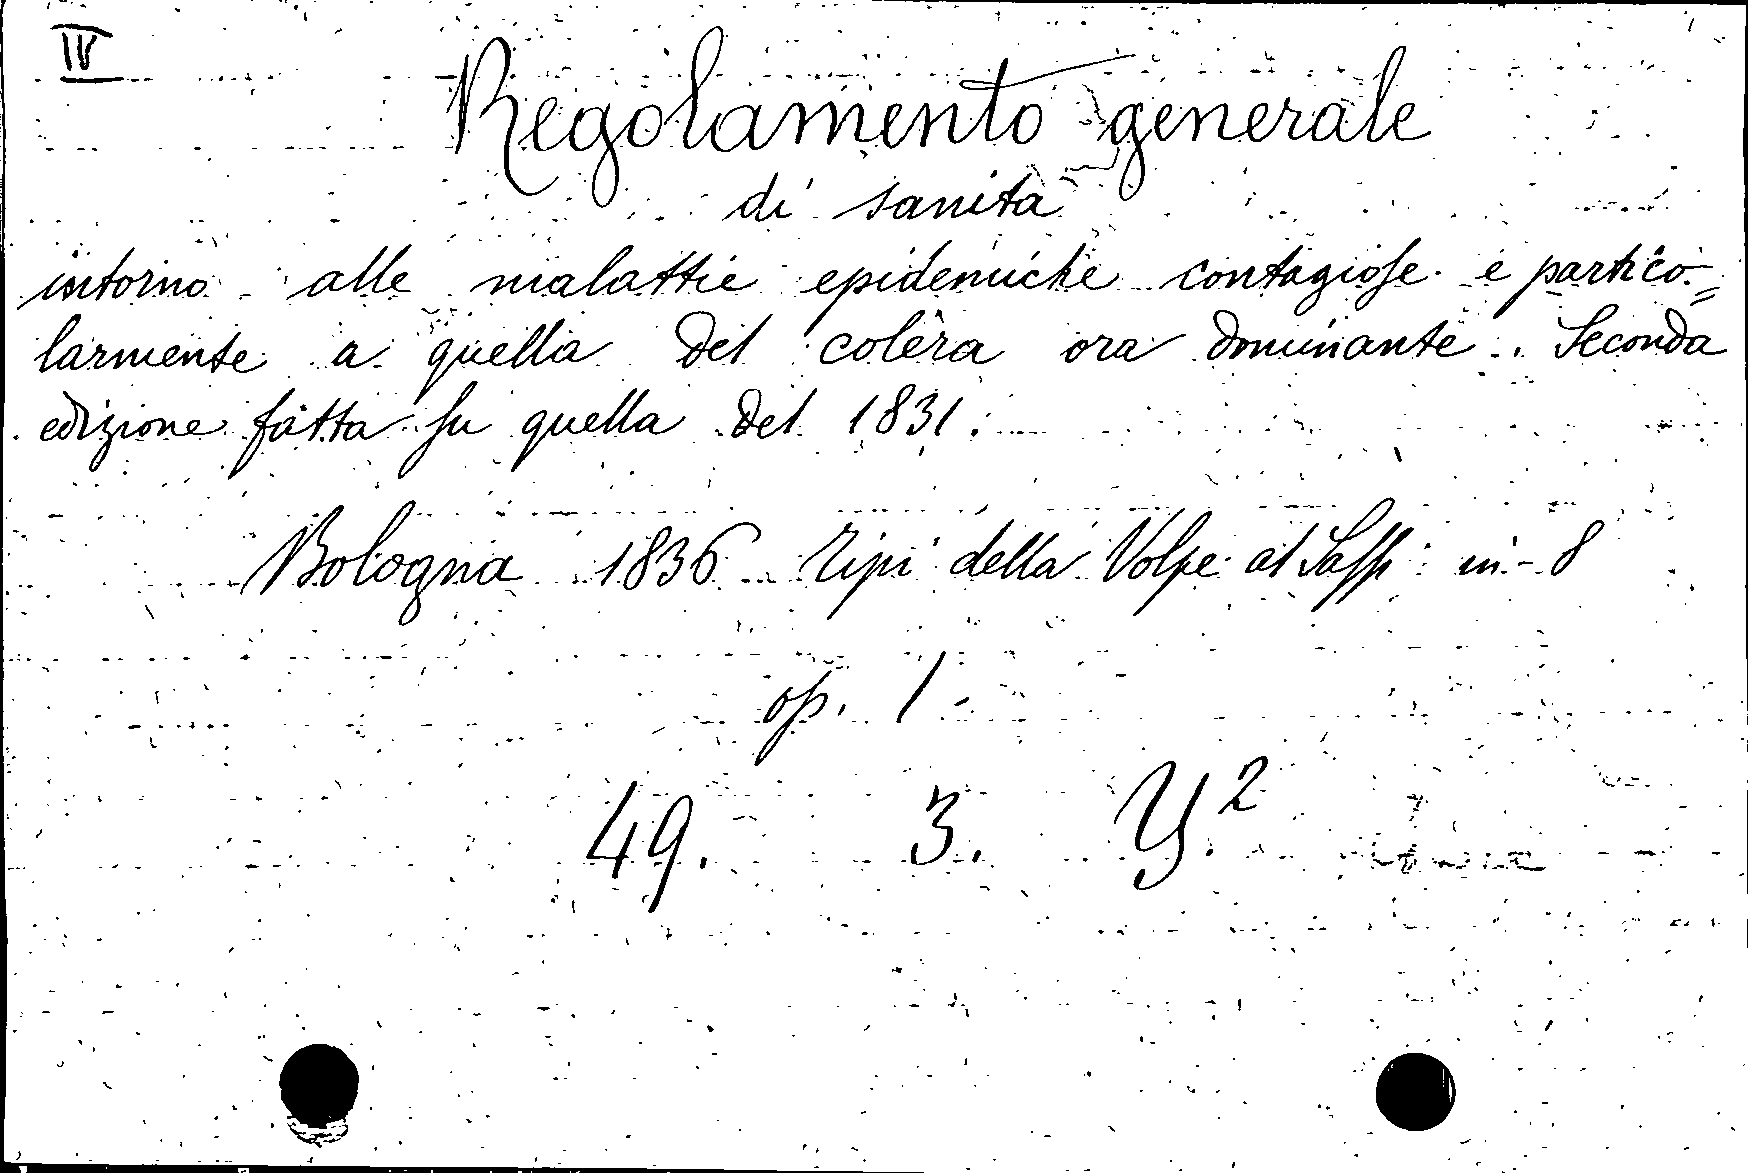 IV
Regolamento generale
di sanità
intorno alle malattie epidemiche contagiose e partico=
larmente a quella del colèra ora dominante. Seconda
edizione fatta su quella del 1831.
Bologna 1836 tipi della Volpe al Sassi in-8
op. 1.
49. 3. Y.2